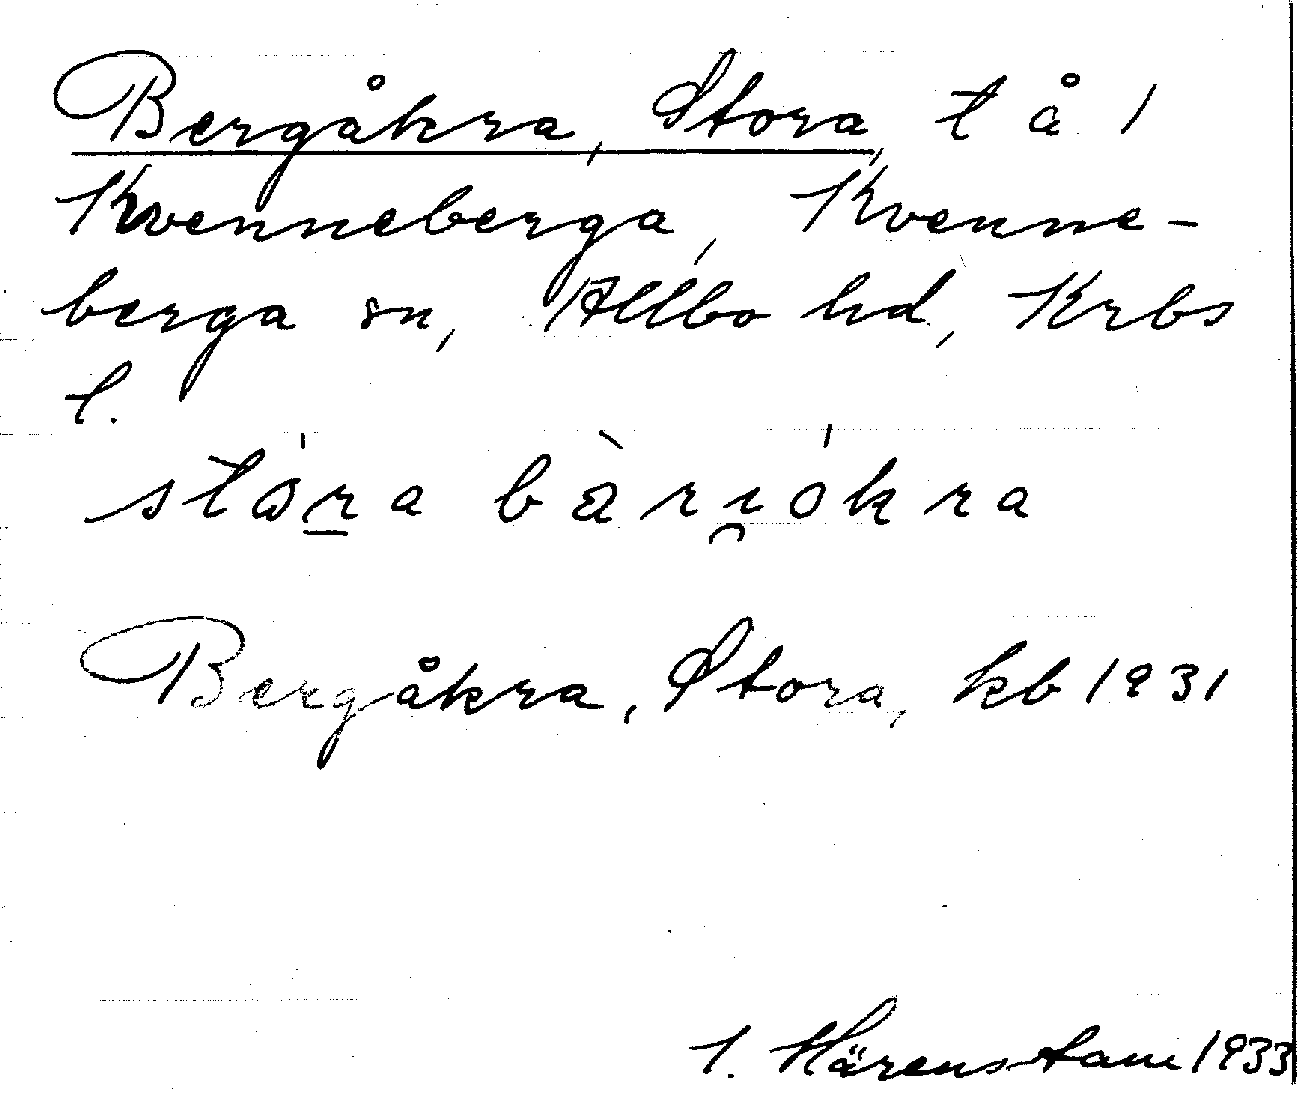 Bergåkra, Stora, t å 1
Kvenneberga, Kvenne-
berga sn, Allbo hd, Krbs
l.
stóra bàri̯ókra
Bergåkra, Stora, kb 1931
Härenstam 1933